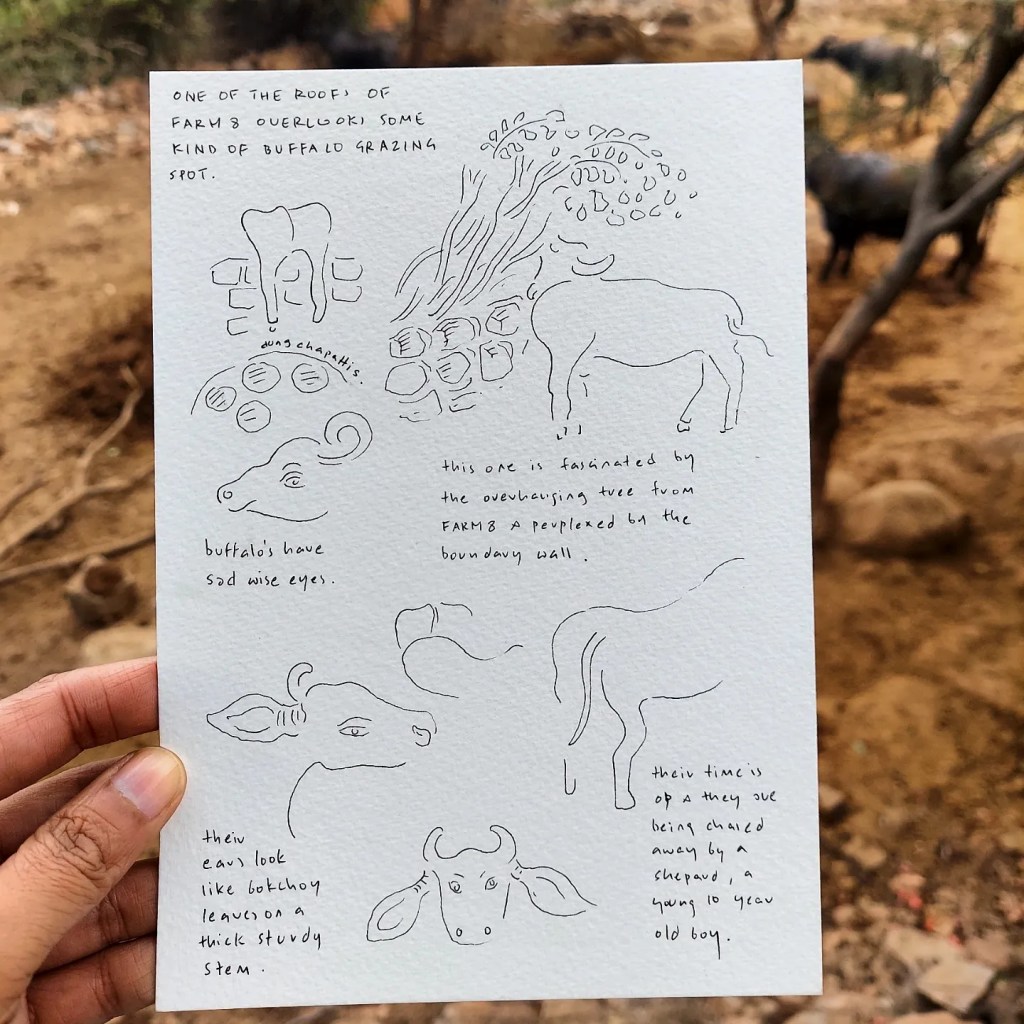 ONE OF THE ROOFS OF
FARM 8 OVERLOOKS SOME
KIND OF BUFFALO GRAZING
SPOT.
dung chapattis.
this one is fascinated by
the overhanging tree from
FARM 8 & perplexed by the
boundary wall.
buffalo's have
sad wise eyes.
their
ears look
like bokchoy
leaves on a
thick sturdy
stem.
their time is
up & they are
being chased
away by a
shepard, a
young 10 year
old boy.